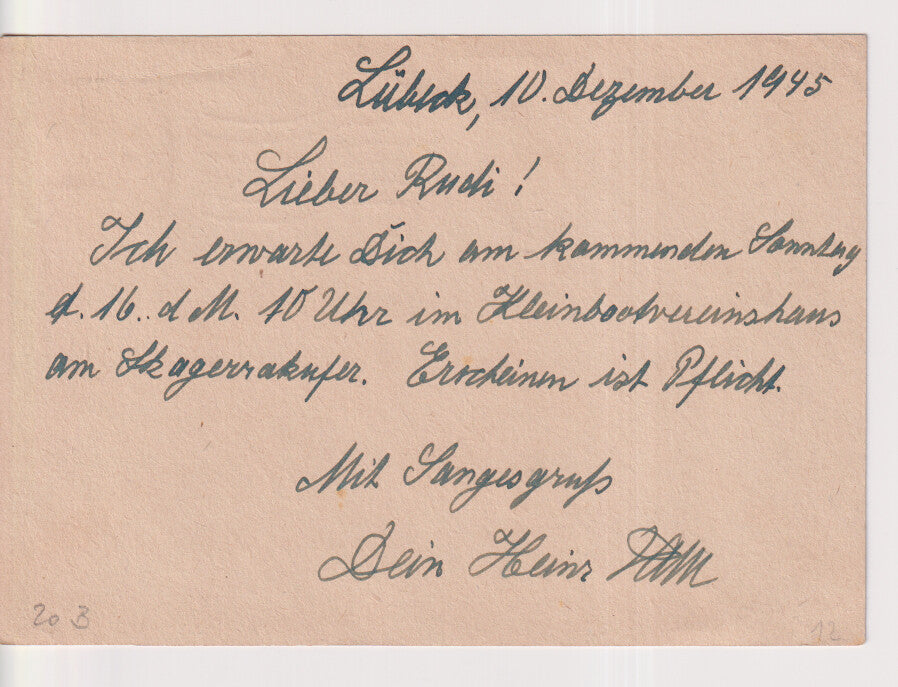 Lübeck, 10. Dezember 1945
Lieber Rudi!
Ich erwarte Dich am kommenden Sonntag
d. 16. d M. 10 Uhr im Kleinbootvereinshaus
am Skagerrakufer. Erscheinen ist Pflicht.
Mit Sangesgruß
Dein Heinz
20 B
12